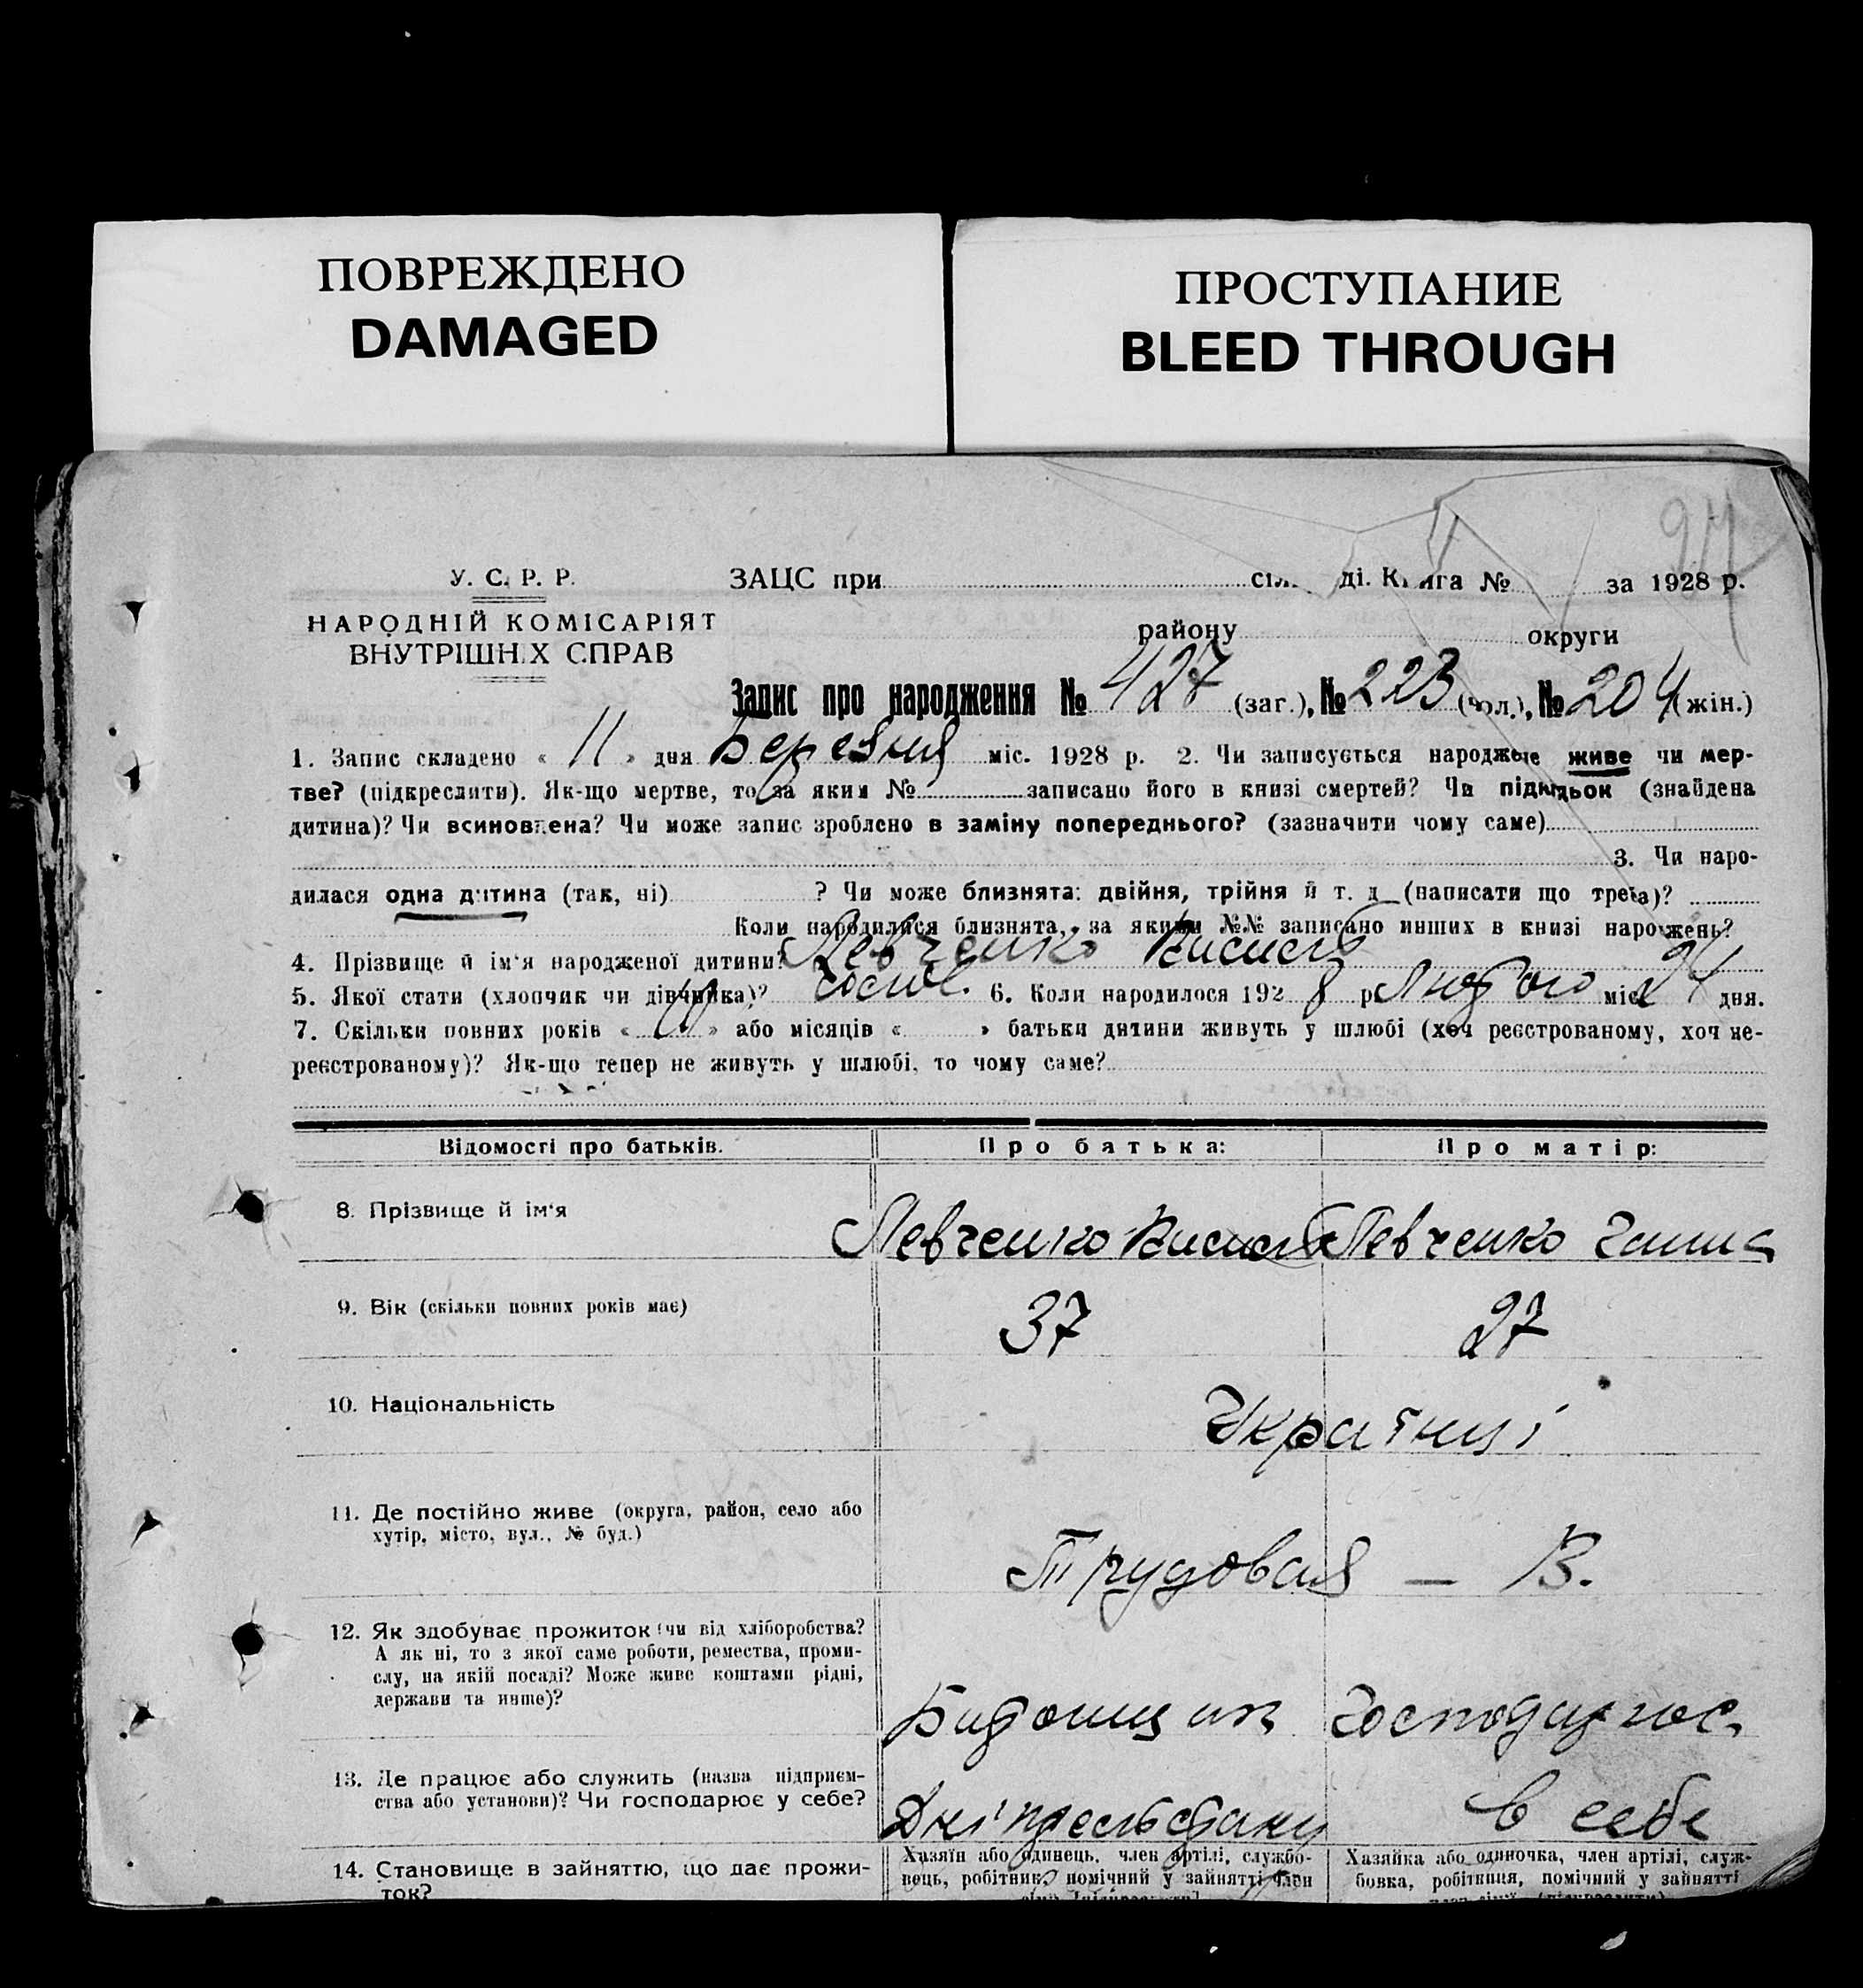 ПОВРЕЖДЕНО
DAMAGED
ПРОСТУПАНИЕ
BLEED THROUGH
97
У. С. Р. Р.
НАРОДНІЙ КОМІСАРІЯТ
ВНУТРІШНИХ СПРАВ
ЗАЦС при сіл ді. Книга № за 1928 р.
району округи
Запис про народження № 427 (заг.), № 223 (чол.), № 204 (жін.)
1. Запис складено « 11 » дня Березня міс. 1928 р. 2. Чи записується народжене живе чи мер-
тве? (підкреслити). Як-що мертве, то за яким № записано його в книзі смертей? Чи підкидьок (знайдена
дитина)? Чи всиновлена? Чи може запис зроблено в заміну попереднього? (зазначити чому саме)
3. Чи наро-
дилася одна дитина (так, ні) ? Чи може близнята: двійня, трійня й т. д (написати що треба)?
Коли народилися близнята, за якими №№ записано инших в книзі народжень?
4. Прізвище й ім'я народженої дитини? Левченко
5. Якої стати (хлопчик чи дівчинка)? 6. Коли народилося 1928 р Лютого міс 24 дня.
7. Скільки повних років « 10 » або місяців « » батьки дитини живуть у шлюбі (хоч реєстрованому, хоч не-
реєстрованому)? Як-що тепер не живуть у шлюбі, то чому саме?
Відомості про батьків. Про батька: Про матір:
8. Прізвище й ім'я Левченко Левченко Ганна
9. Вік (скільки повних років має) 37 27
10. Національність Українці
11. Де постійно живе (округа, район, село або
хутір, місто, вул., № буд.) Трудовая — 13.
12. Як здобуває прожиток (чи від хліборобства?
А як ні, то з якої саме роботи, ремества, проми-
слу, на якій посаді? Може живе коштами рідні,
держави та инше)? Господарює
13. Де працює або служить (назва підприєм-
ства або установи)? Чи господарює у себе? Дніпрельстану в себе
14. Становище в зайняттю, що дає прожи-
ток?
Хазяїн або одинець, член артілі, службо-
вець, робітник, помічний у зайнятті член
Хазяйка або одиночка, член артілі, служ-
бовка, робітниця, помічний у зайнятті